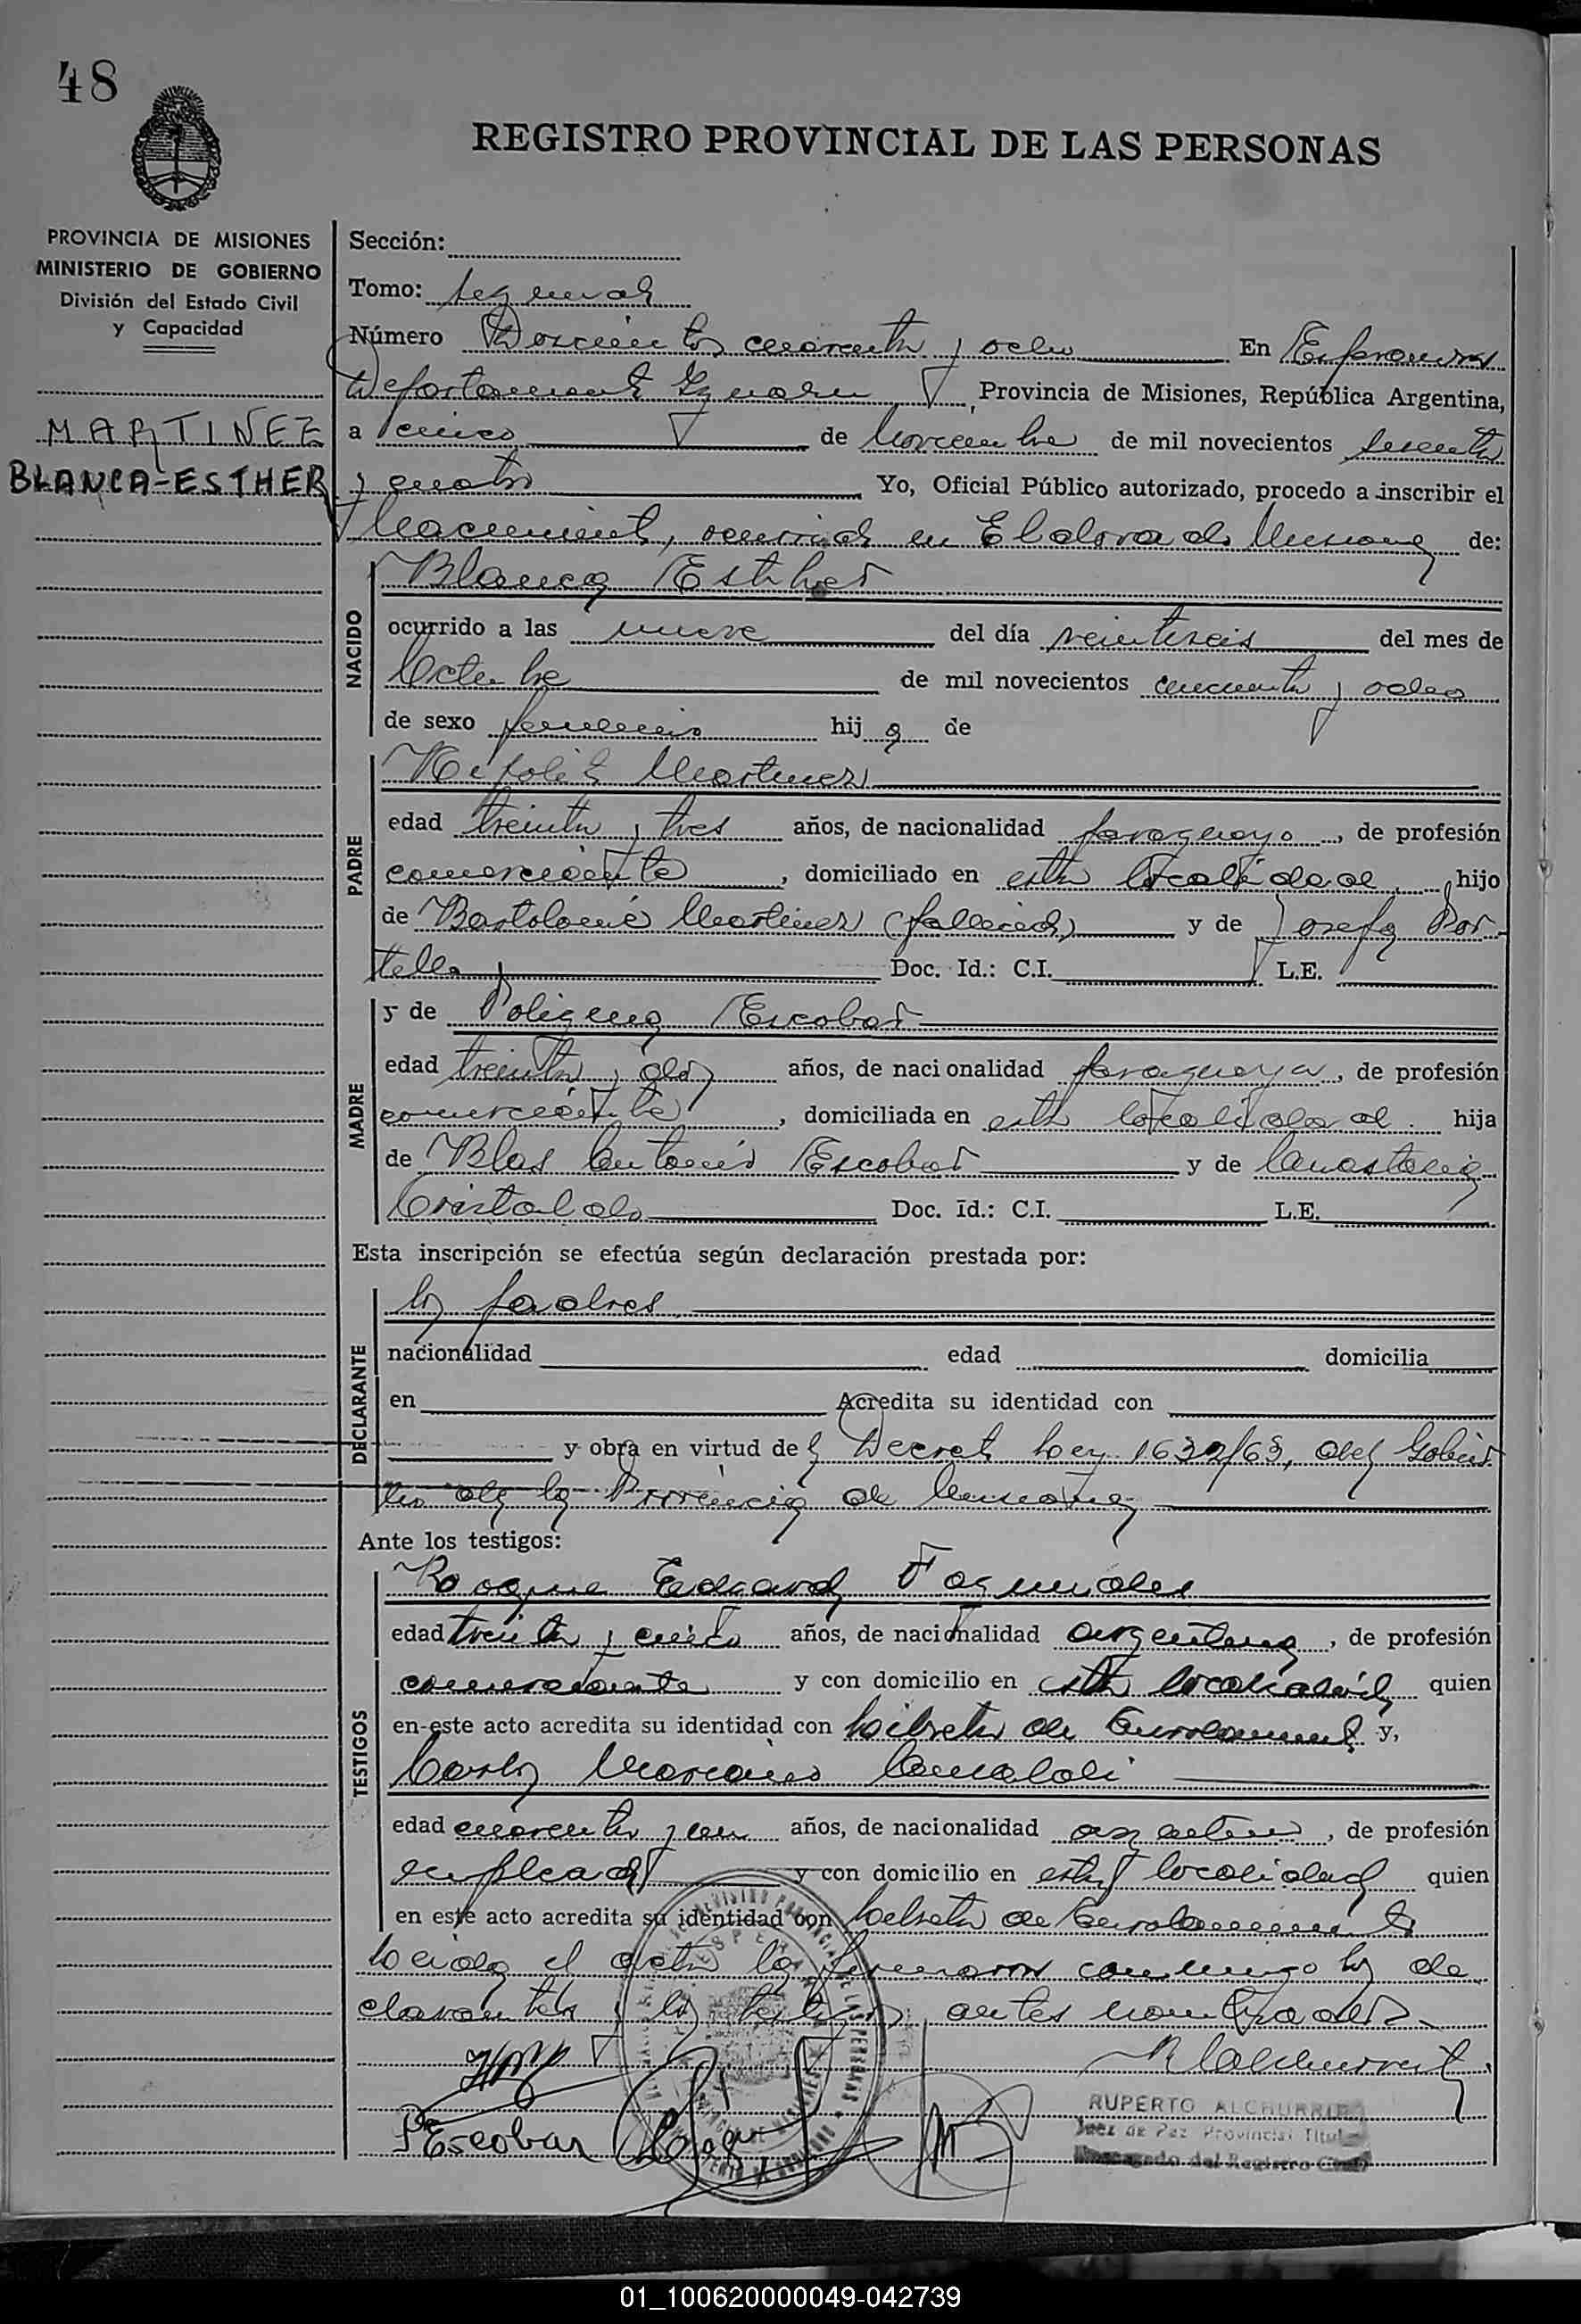 48
REGISTRO PROVINCIAL DE LAS PERSONAS
PROVINCIA DE MISIONES
MINISTERIO DE GOBIERNO
División del Estado Civil
y Capacidad
MARTINEZ
BLANCA-ESTHER
Sección:
Tomo: segundo
Número Doscientos cuarenta y ocho En Esperanza
Departamento Iguazu, Provincia de Misiones, República Argentina,
a cinco de Noviembre de mil novecientos sesenta
y cuatro Yo, Oficial Público autorizado, procedo a inscribir el
Nacimiento, ocurrido en Eldorado Misiones de:
NACIDO
Blanca Esther
ocurrido a las nueve del día veintiseis del mes de
Octubre de mil novecientos cincuenta y ocho
de sexo femenino hija de
PADRE
Martinez
edad treinta y tres años, de nacionalidad paraguayo, de profesión
comerciante, domiciliado en esta localidad, hijo
de Bartolomé Martinez (fallecido) y de Josefa Por-
tillo Doc. Id.: C.I. L.E.
MADRE
y de Escobar
edad treinta y dos años, de nacionalidad paraguaya, de profesión
comerciante, domiciliada en esta localidad. hija
de Blas Antonio Escobar y de Anastacia
Cristaldo Doc. Id.: C.I. L.E.
Esta inscripción se efectúa según declaración prestada por:
DECLARANTE
los padres
nacionalidad edad domicilia
en Acredita su identidad con
y obra en virtud del Decreto Ley 1632/63, del Gobier
no de la Provincia de Misiones
Ante los testigos:
TESTIGOS
Roque Eduardo Fagundes
edad treinta y cinco años, de nacionalidad argentina, de profesión
comerciante y con domicilio en esta localidad quien
en este acto acredita su identidad con Libreta de Enrolamiento y,
Carlos Mariano
edad cuarenta y un años, de nacionalidad argentino, de profesión
empleado y con domicilio en esta localidad quien
en este acto acredita su identidad con Libreta de Enrolamiento
Leida el acta la firmaron conmigo los de
clarantes y los testigos antes nombrados.
P. Escobar
RUPERTO ALCHURRUT
Juez de Paz Provincial Titular
Encargado del Registro Civil
01_100620000049-042739